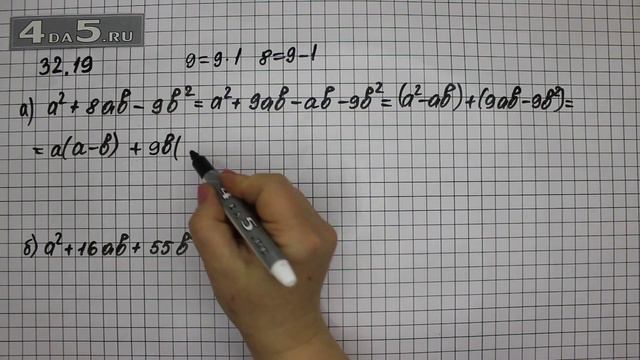 4DA5.RU
32.19
9=9·1 8=9-1
а) a²+8ab-9b²=a²+9ab-ab-9b²=(a²-ab)+(9ab-9b²)=
=a(a-b)+9b(
4 DA 5
б) a²+16ab+55b